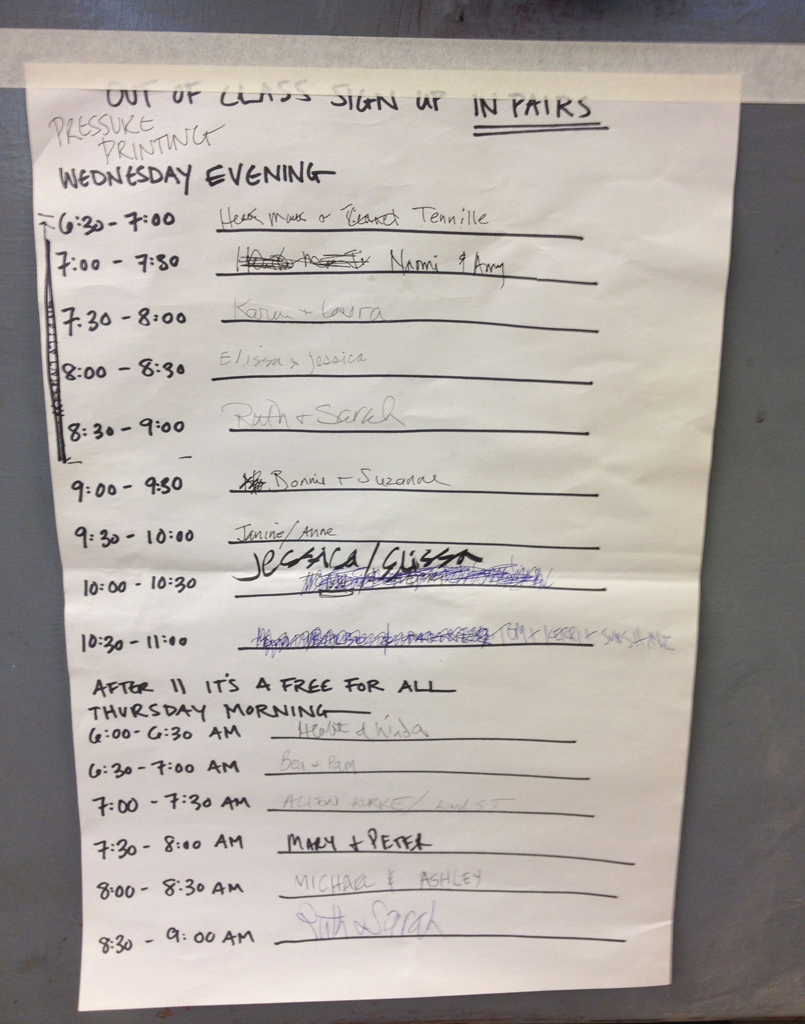 OUT OF CLASS SIGN UP IN PAIRS
PRESSURE
PRINTING
WEDNESDAY EVENING
6:30 - 7:00 Tennille
7:00 - 7:30 Naomi & Amy
7:30 - 8:00 Karen + Laura
8:00 - 8:30 Elissa & Jessica
8:30 - 9:00 Ruth + Sarah
9:00 - 9:30 Bonnie + Suzanne
9:30 - 10:00 Janine/Anne
10:00 - 10:30 Jessica/Elissa
10:30 - 11:00 TOM + KERRI + SUNSHINE
AFTER 11 IT'S A FREE FOR ALL
THURSDAY MORNING
6:00 - 6:30 AM & Linda
6:30 - 7:00 AM Bea + Pam
7:00 - 7:30 AM ALISON
7:30 - 8:00 AM MARY + PETER
8:00 - 8:30 AM MICHAEL & ASHLEY
8:30 - 9:00 AM Ruth & Sarah